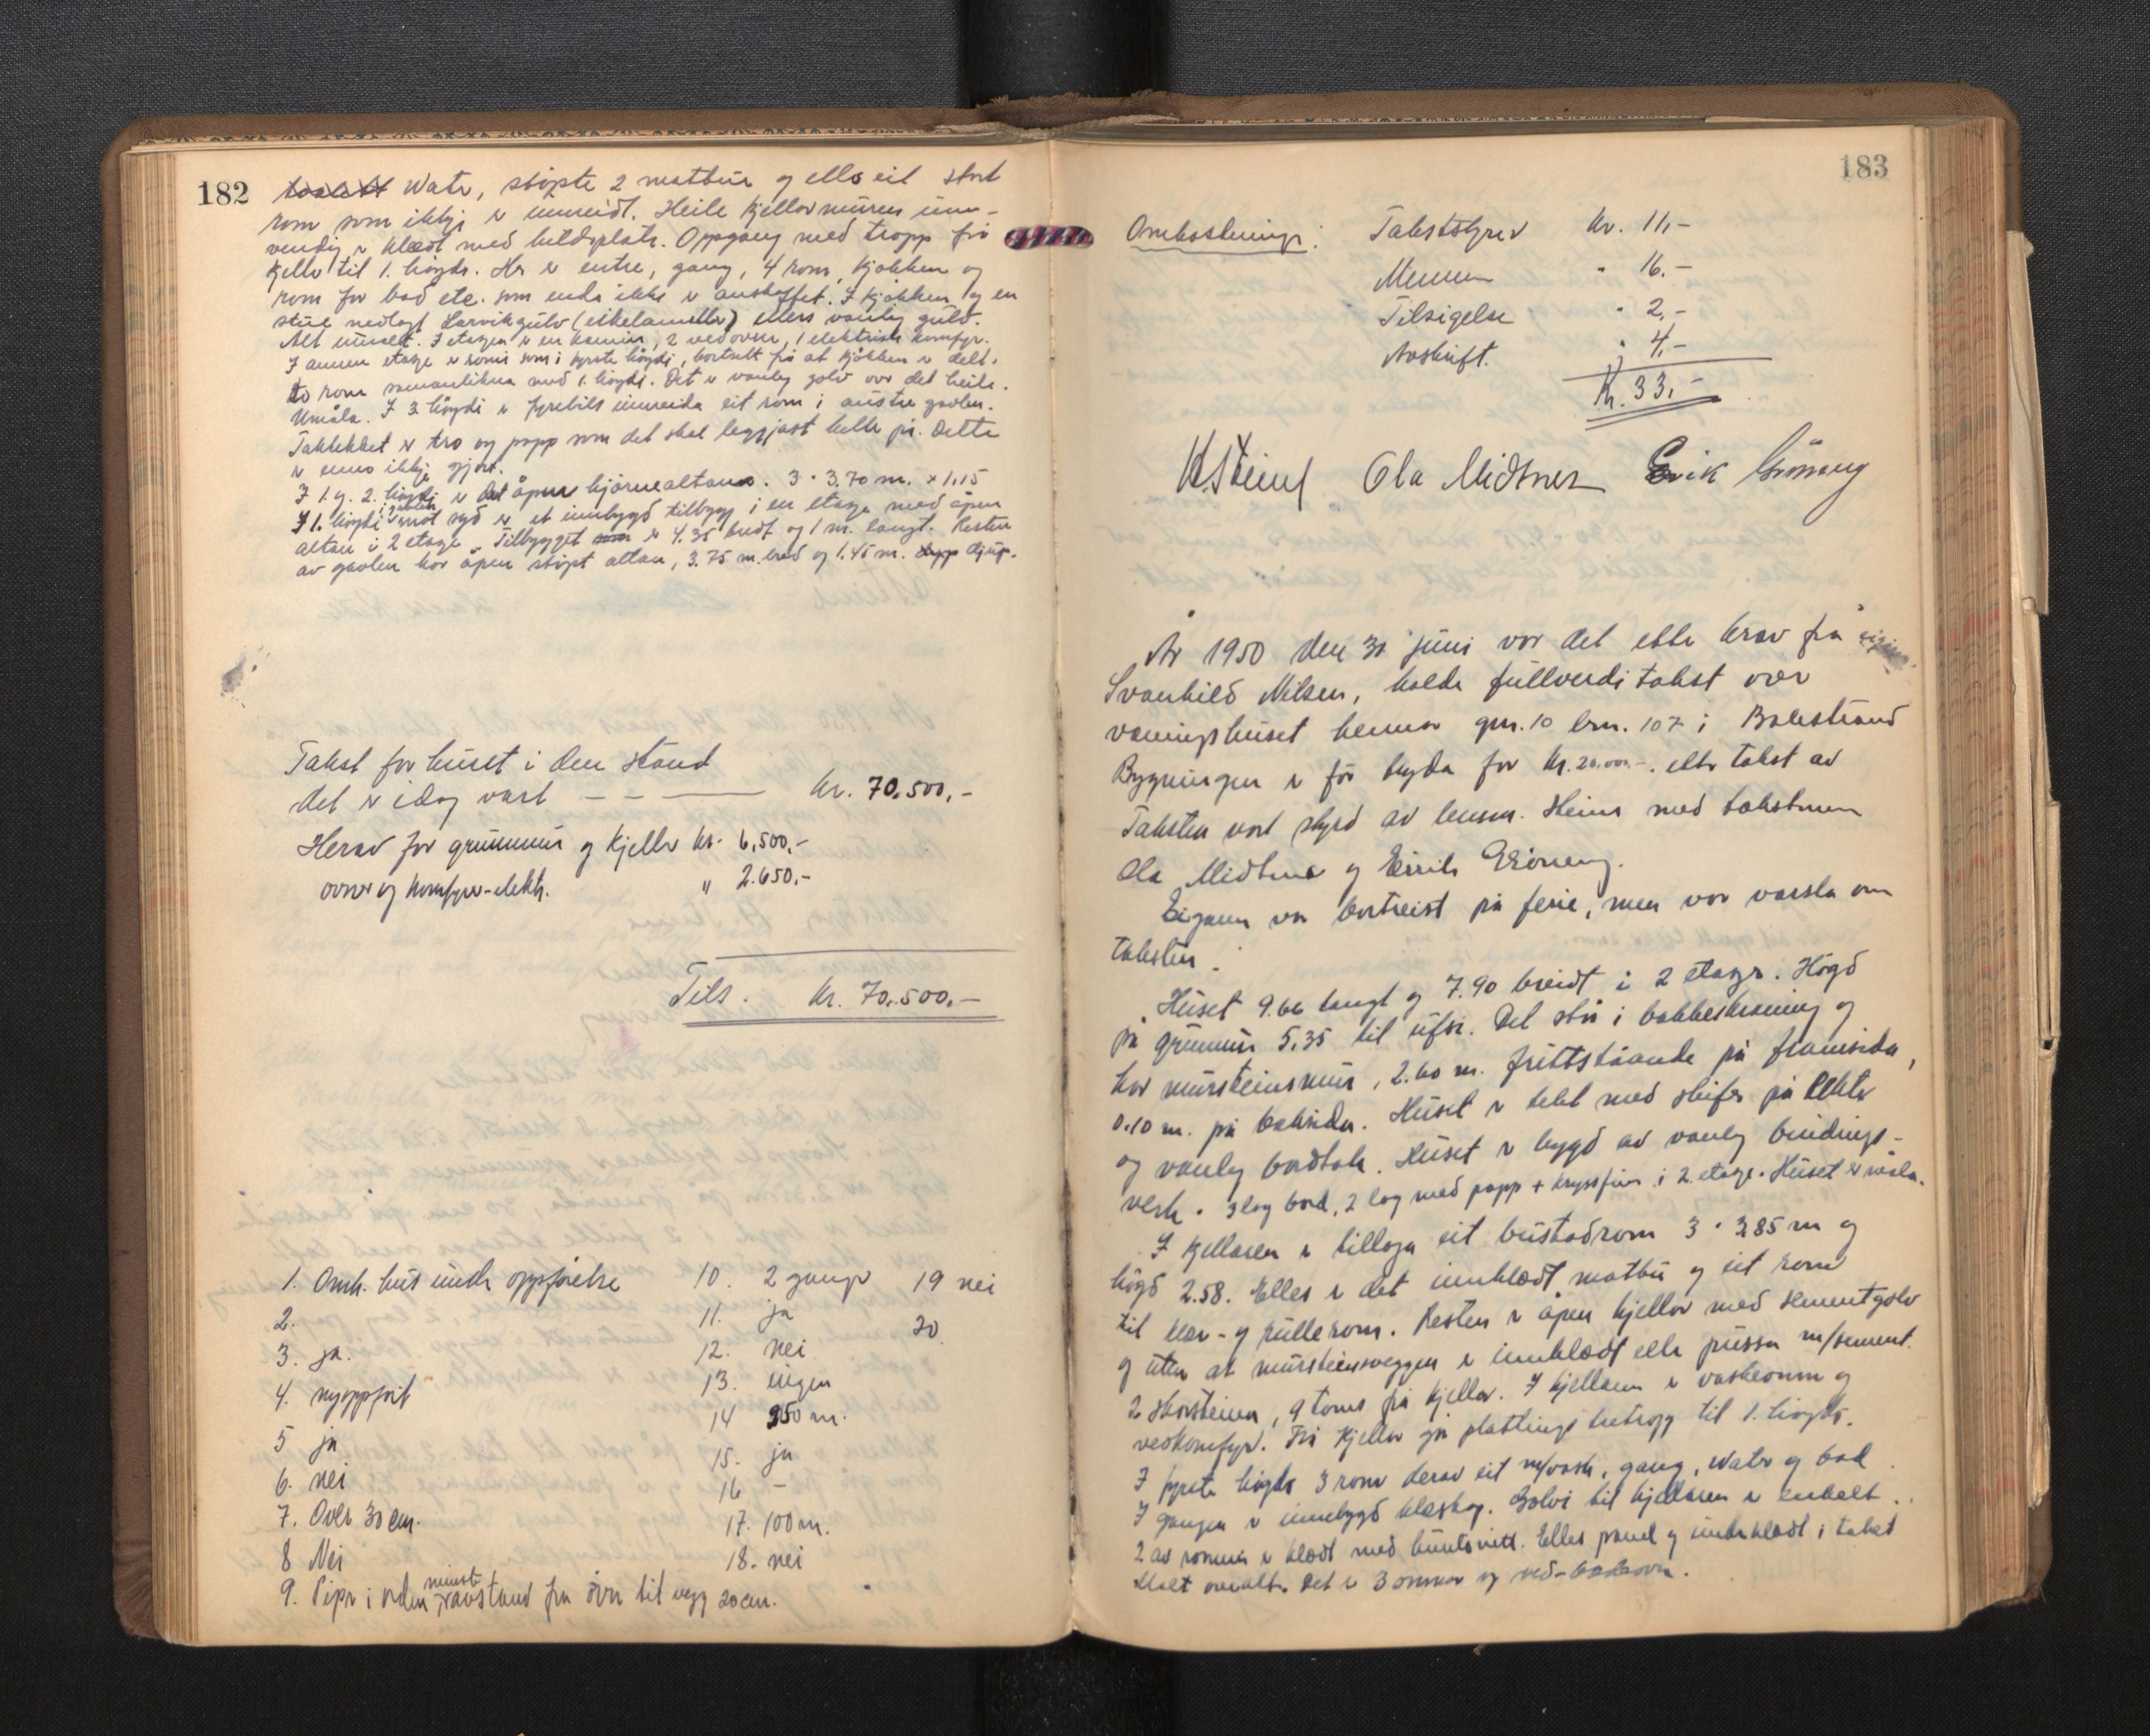 182
Water, støpte 2 matbur og ells eit stort
rom som ikkje er innreidt. Heile kjellarmuren inn-
vendig er klædt med hultdsplate. Oppgang med tropp frå
kjellar til 1. høgde. Her er entre, gang, 4 rom, kjøkken og
rom for bad etc. som enda ikke er anskaffet. I kjøkken og en
stue nedlagt Larvikgulv (eikelameller) ellers vanlig gulv.
Alt umalt. I etagen er en kamin, 2 vedovner, 1 elektrisk komfyr.
I annen etage er romi som i fyrste høgdi, bortsett frå at kjøkken er delt.
to rom samanlikna med 1. høgdi. Det er vanleg golv over det heile.
Umåla. I 3. høgdi er fyrebils innreida eit rom i austre gavlen.
Taktekket er tro og papp som det skal leggjast heller på. Dette
er enno ikkje gjort.
I 1. og 2. høgdi er det åpne hjørnealtaner. 3 · 3,70 m. x 1,15
I 1. høgdi i gavlen mot syd er et innbygd tilbygg i en etage med åpen
altan i 2 etage. Tilbygget er 4.35 bredt og 1 m. langt. Resten
av gavlen har åpen støpt altan, 3.75 m. bred og 1.45 m. djup.
Takst for huset i den stand
det er idag vart — — —— kr. 70.500,-
Herav for grunnmur og kjeller kr. 6.500,-
ovner og komfyrer-elektr. " 2.650,-
Tils. kr. 70.500,—
1. Omh. hus under oppførelse 10. 2 ganger 19 nei
2. 11. ja 20
3. ja. 12. nei
4. nyoppført 13. ingen
5 ja 14 250 m.
6. nei 15. ja
7. Over 30 cm. 16 -
8 Nei 17. 100 m.
9. Piper i orden, minste avstand fra ovn til vegg 20 cm. 18. nei
183
Omkostninger: Takststyrer kr. 11,-
Mennene " 16.-
Tilsigelse " 2,-
Avskrift. " 4,-
Kr. 33,-
H. Steins Ola Midtnes Eirik Grøneng
År 1950 den 30 juni var det etter krav frå eigaren
Svanhild Nilsen, halde fullverdi takst over
våningshuset hennar gnr. 10 brn. 107 i Balestrand
Bygningen er før trygda for kr. 20.000.-. etter takst av
Taksten vart styrd av lensm. Steins med takstmenn
Ola Midtnes og Eirik Grøneng.
Eigaren var bortreist på ferie, men var varsla om
taksten.
Huset 9.66 langt og 7.90 breidt i 2 etager. Høgd
på grunnmur 5.35 til ufsi. Det står i bakkeskråning og
har mursteinsmur, 2.60 m. frittståande på framsida,
0.10 m. på baksida. Huset er tekt med skifer på lekter
og vanleg bordtak. Huset er bygd av vanleg bindings-
verk. 3 lag bord, 2 lag med papp + kryssfiner i 2. etage. Huset er måla.
I kjellaren er tillaga eit bustadrom 3 · 3,85 m og
høgd 2.58. Elles er det innklædt matbu og eit rom
til klær- og rullerom. Resten er åpen kjellar med sementgolv
og uten at mursteinsveggen er innklædt eller pussa m/sement.
2 skorsteinar, 9 toms frå kjellar. I kjellaren er vaskeovn og
vedkomfyr. Frå kjellar går plattings tretrapp til 1. høgdi.
I fyrste høgdi 3 rom derav eit m/vask, gang, water og bad.
I gangen er innebygd klæskap. Golvi til kjellaren er enkelt.
2 av romma er klædt med huntonitt. Elles panel og underklædt i taket
Malt overalt. Det er 3 omnar og ved-badeovn.